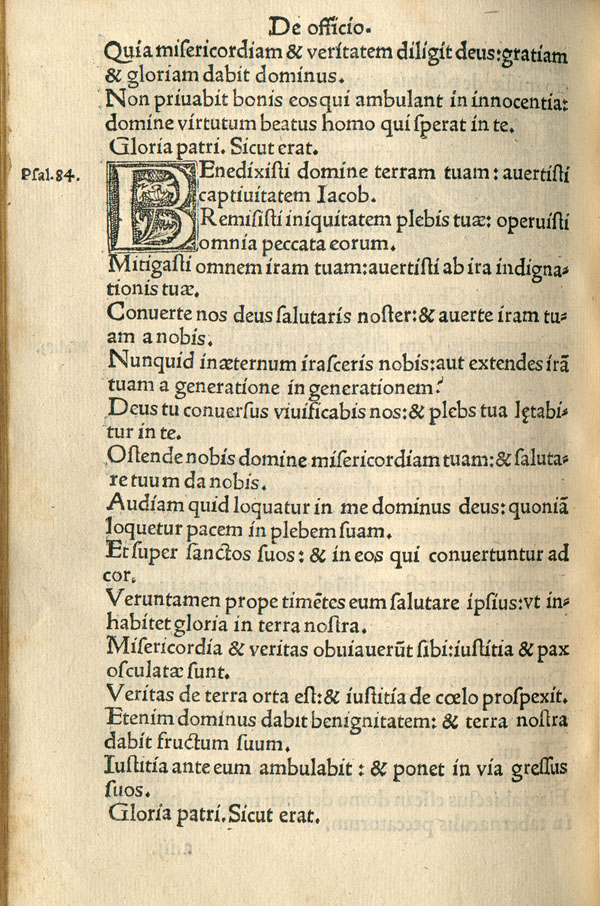 De officio.
Quia misericordiam & veritatem diligit deus: gratiam
& gloriam dabit dominus.
Non priuabit bonis eos qui ambulant in innocentia:
domine virtutum beatus homo qui sperat in te.
Gloria patri. Sicut erat.
Psal. 84.
BEnedixisti domine terram tuam: auertisti
captiuitatem Iacob.
Remisisti iniquitatem plebis tuæ: operuisti
omnia peccata eorum.
Mitigasti omnem iram tuam: auertisti ab ira indigna-
tionis tuæ.
Conuerte nos deus salutaris noster: & auerte iram tu-
am a nobis.
Nunquid in æternum irasceris nobis: aut extendes irā
tuam a generatione in generationem?
Deus tu conuersus viuificabis nos: & plebs tua lętabi-
tur in te.
Ostende nobis domine misericordiam tuam: & saluta-
re tuum da nobis.
Audiam quid loquatur in me dominus deus: quoniā
loquetur pacem in plebem suam.
Et super sanctos suos: & in eos qui conuertuntur ad
cor.
Veruntamen prope timētes eum salutare ipsius: vt in-
habitet gloria in terra nostra.
Misericordia & veritas obuiauerūt sibi: iustitia & pax
osculatæ sunt.
Veritas de terra orta est: & iustitia de cœlo prospexit.
Etenim dominus dabit benignitatem: & terra nostra
dabit fructum suum.
Iustitia ante eum ambulabit: & ponet in via gressus
suos.
Gloria patri. Sicut erat.